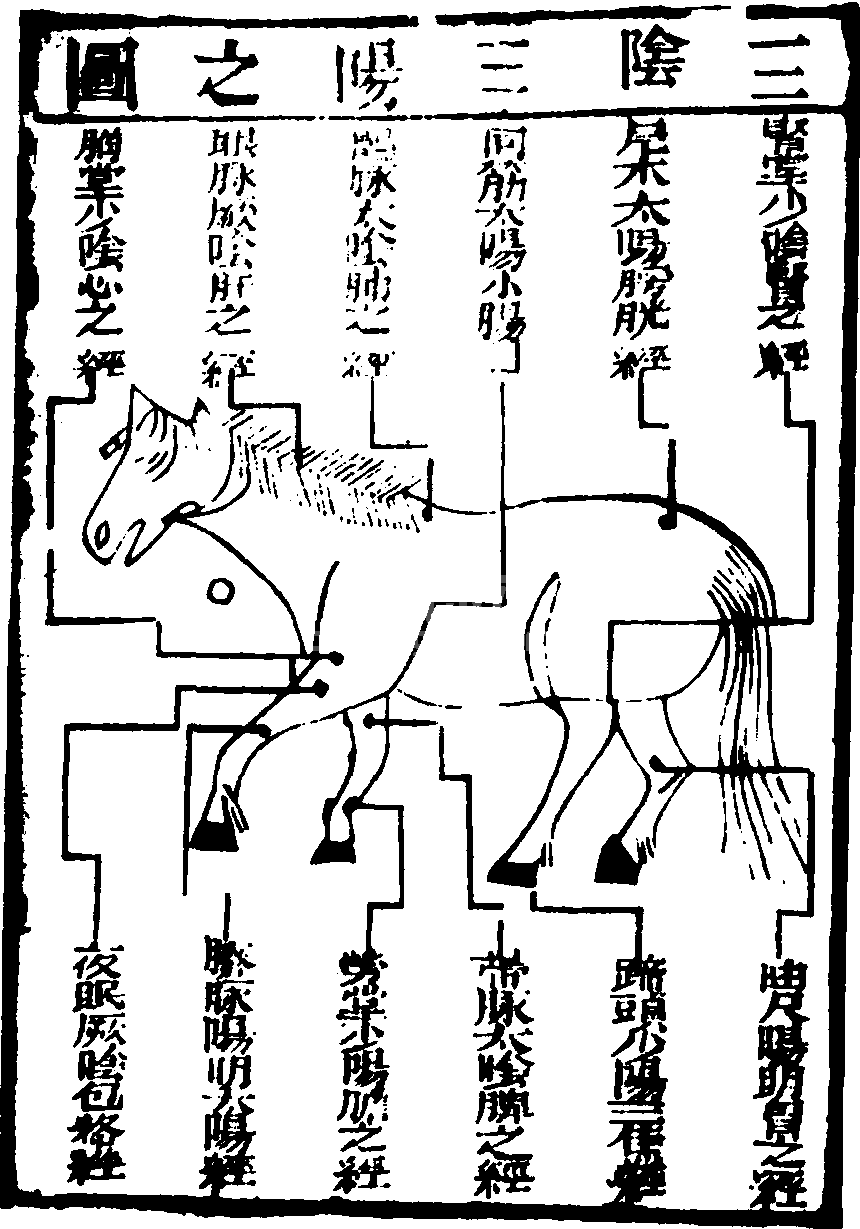 三陰三陽之圖
腎堂少陰腎之經
尾木太陽膀胱經
同筋太陽小腸
脉太陰肺之經
眼脉厥陰肝之經
胸堂少陰心之經
曲尺陽明胃之經
蹄頭少陽三焦經
帶脉太陰脾之經
勞堂少陽胆之經
脉陽明大腸經
夜眼厥陰包絡經